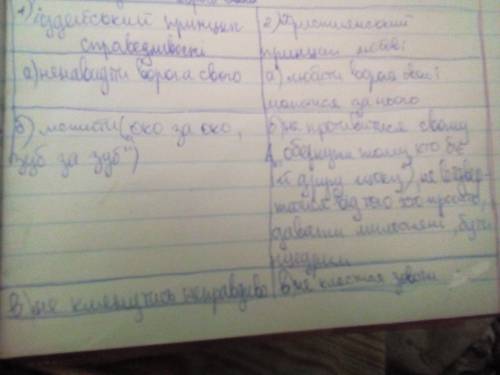 1) Іудейський принцип
справедливості
а) ненавидіти ворога свого
б) мстити („око за око,
зуб за зуб")
в) не клянучись неправдиво
2) Християнський
принцип любові
а) любити ворога свого і
молитися за нього
б) не противитися свому
обернути тому, хто б'є
й другу щоку), не відвер-
татися від того хто просить,
давати милостині, бути
щедрим
в) не клястися зовсім